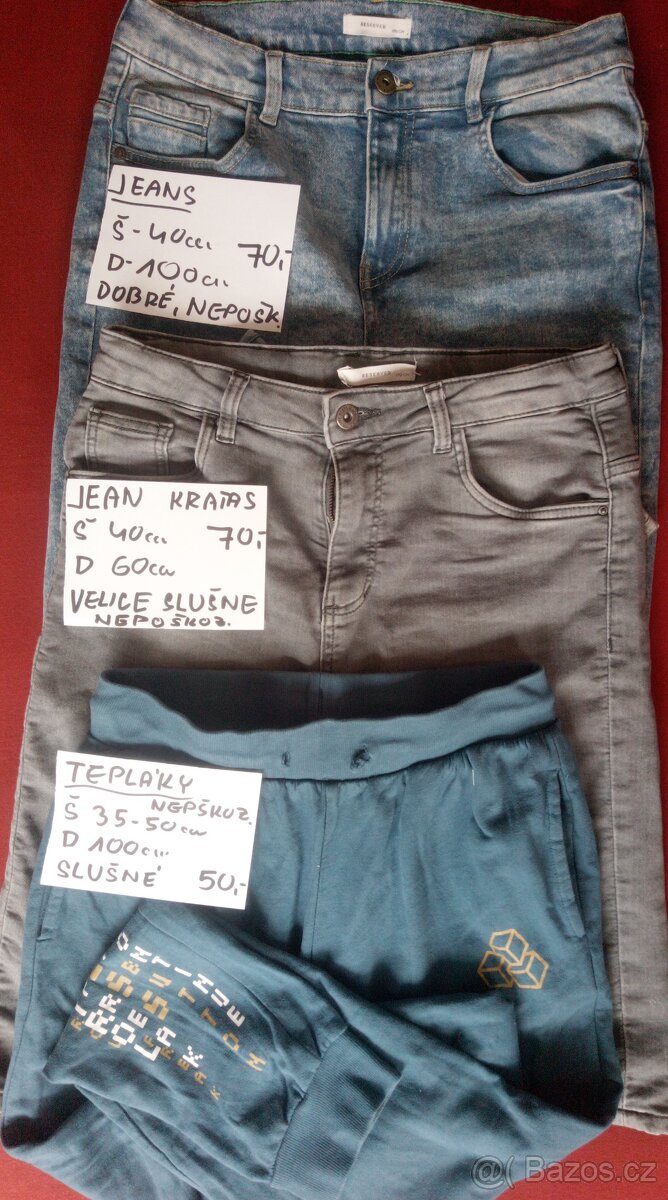 RESERVED
JEANS
Š - 40cm 70,-
D - 100cm
DOBRÉ, NEPOŠK.
RESERVED
JEAN KRAŤAS
Š 40cm 70,-
D 60cm
VELICE SLUŠNE
NEPOŠKOZ.
TEPLÁKY
NEPŠKOZ.
Š 35-50cm
D 100cm
SLUŠNÉ 50,-
@( Bazos.cz